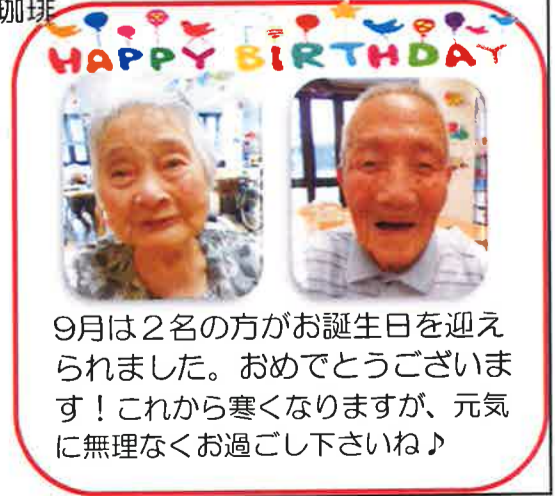 珈琲
HAPPY BIRTHDAY
9月は2名の方がお誕生日を迎え
られました。おめでとうございま
す!これから寒くなりますが、元気
に無理なくお過ごし下さいね♪